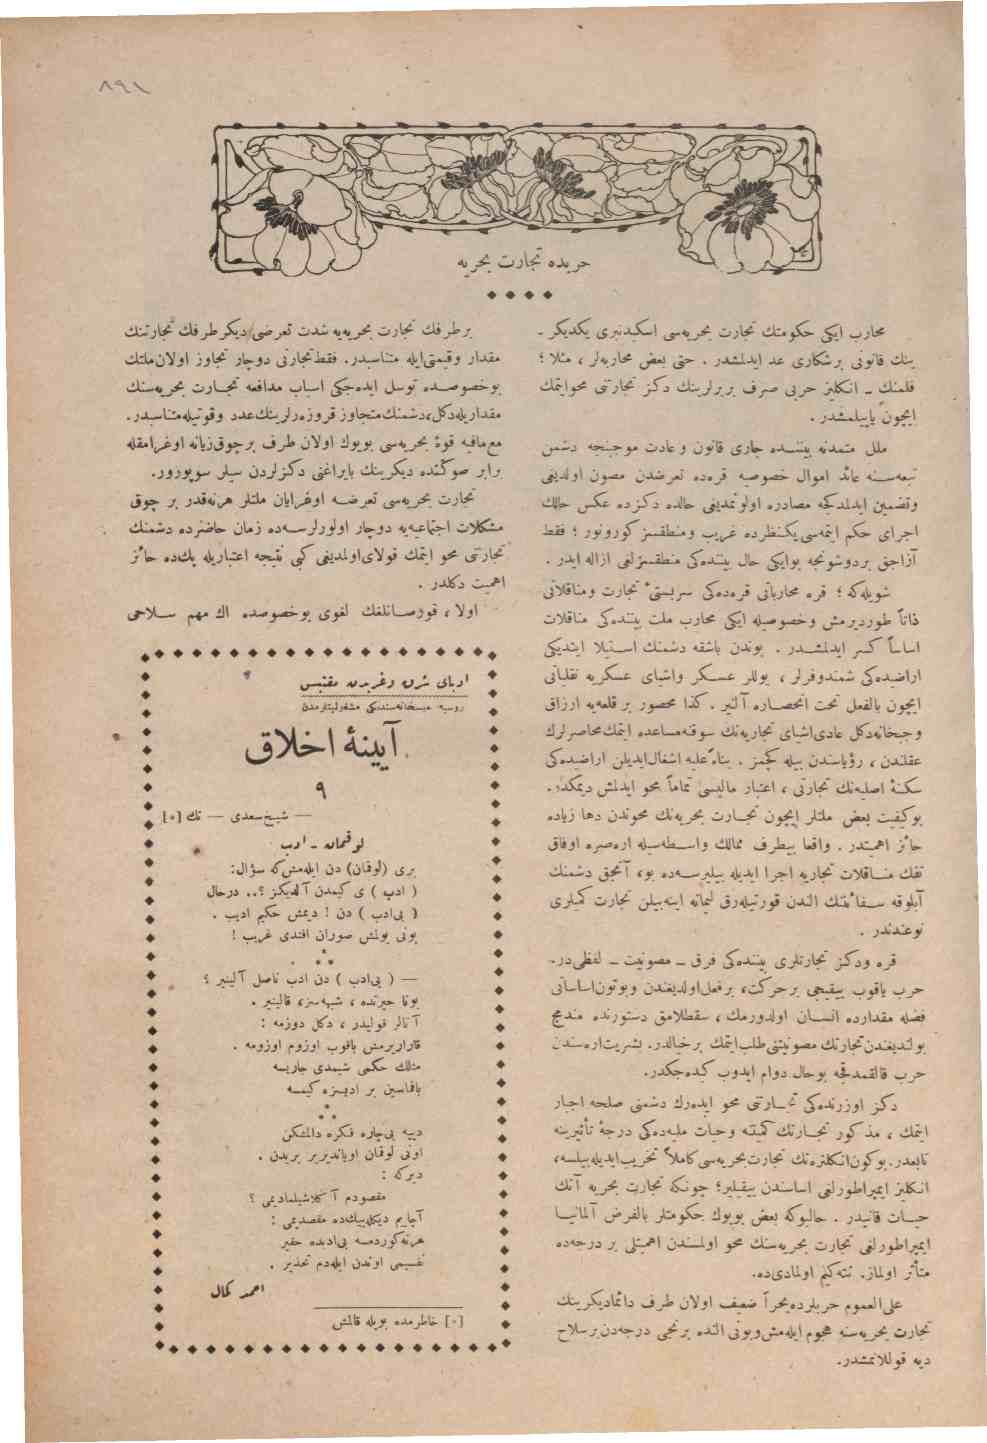 ٨٩١
حربده تجارت بحریه
محارب ایكی حكومتك تجارت بحریه‌سی اسكیدنبری یكدیكر ـ
ینك قانونی برشكاری عد ایدلمشدر . حتی بعض محاربه‌لر ، مثلا ؛
فلمنك ـ انكلیز حربی صرف بربرلرینك دكز تجارتنی محوایتمك
ایچون یاپیلمشدر .
ملل متمدنه بیننـده جاری قانون وعادت موجبنجه دشمن
تبعه‌سـنه عائد اموال خصوصیه قره‌ده تعرضدن مصون اولدیغی
وتضمین ایدلمدكجه مصادره اولوتمدیغی حالده دكزده عكس حالك
اجرای حكم ایتمه‌سی یك‌نظرده غریب ومنطقسز كورونور ؛ فقط
آزاجق بردوشونجه بوایكی حال بیننده‌كی منطقسزلغی ازاله ایدر .
شویله‌كه ؛ قره محارباتی قره‌ده‌كی سربستیٔ تجارت ومناقلاتی
ذاتاً طوردیرمش وخصوصیله ایكی محارب ملت بیننده‌كی مناقلات
اساساً كسر ایدلمشـدر . بوندن باشقه دشمنك اسـتیلا ایتدیكی
اراضیده‌كی شمندوفرلر ، یوللر عسـكر واشیای عسكریه نقلیاتی
ایچون بالفعل تحت انحصـاره آلنیر . كذا محصور برقلعه‌یه ارزاق
وجبخانه‌دكل عادی‌اشیای تجاریه‌نك سوقنه‌مساعده ایتمك‌محاصرلرك
عقلندن ، رؤیاسندن بیله كچمز . بناءً علیه اشغال‌ایدیلن اراضیده‌كی
سكنهٔ اصلیه‌نك تجارتی ، اعتبار مالیسی تماماً محو ایدلمش دیمكدر.
بوكیفیت بعض ملتلر ایچون تجـارت بحریه‌نك محوندن دها زیاده
حائز اهمیتدر . واقعا بیطرف ممالك واسـطه‌سیله اره‌صره اوفاق
تفك منـاقلات تجاریه اجرا ایدیله بیلیرسـه‌ده بو، آنجق دشمنك
آبلوقه سـفائتنك الندن قورتیله‌رق لیمانه اینه‌بیلن تجارت كمیلری
نوعندندر .
قره ودكز تجارتلری بیننده‌كی فرق ـ مصونیت ـ لفظی‌در.
حرب یاقوب ییقیجی برحركت، برفعل‌اولدیغندن وبوتون‌اساساتی
فضله مقدارده انسـان اولدورمك ، سقطلامق دستورنده مندمج
بولندیغندن‌تجارتك مصونیتنی‌طلب‌ایتمك برخیالدر. بشریت‌اره‌سندن
حرب قالقمدقجه بوحال دوام ایدوب كیده‌جكدر.
دكز اوزرنده‌كی تجـارتی محو ایده‌رك دشمنی صلحه اجبار
ایتمك ، مذكور تجـارتك كمیتنه وحیات ملیه‌ده‌كی درجهٔ تأثیرینه
تابعدر.بوكون‌انكلتره‌نك تجارت‌بحریه‌سی‌كاملاً تخریب‌ایدیله‌بیلسه،
انكلیز ایمپراطورلغی اساسندن ییقیلیر؛ چونكه تجارت بحریه آنك
حیـات قانیدر . حالبوكه بعض بویوك حكومتلر بالفرض آلمانیـا
ایمپراطورلغی تجارت بحریه‌سنك محو اولمسندن اهمیتلی بر درجه‌ده
متأثر اولماز. نته‌كیم اولمادی‌ده.
علی‌العموم حربلرده‌بحراً ضعیف اولان طرف دائمادیكرینك
تجارت بحریه‌سنه هجوم ایله‌مش‌وبونی النده برنجی درجه‌دن‌برسلاح
دیه قوللانمشدر.
برطرفك تجارت بحریه‌یه شدت تعرضی‌دیكر طرفك تجارتنك
مقدار وقیمتی‌ایله متناسبدر. فقط‌تجارتی دوچار تجاوز اولان‌ملتك
بوخصوصـده توسل ایده‌جكی اسباب مدافعه تجـارت بحریه‌سنك
مقداریله‌دكل،دشمنك‌متجاوز قروزه‌رلرینك‌عدد وقوتیله‌متناسبدر.
مع‌مافیه قوهٔ بحریه‌سی بویوك اولان طرف برچوق‌زیانه اوغرامقله
برابر صوكنده دیكرینك بایراغنی دكزلردن سیلر سوپورور.
تجارت بحریه‌سی تعرضـه اوغرایان ملتلر هرنه‌قدر بر چوق
مشكلات اجتماعیه‌یه دوچار اولورلرسـه‌ده زمان حاضرده دشمنك
تجارتنی محو ایتمك قولای‌اولمدیغی كبی نتیجه اعتباریله پك‌ده حائز
اهمیت دكلدر .
اولا ، قورصـانلغك لغوی بوخصوصده اك مهم سـلاحی
ادبای شرق وغربدن مقتبس
روسیه محبسخانه‌سنده‌كی مشغولیتلرمدن
آیینهٔ اخلاق
٩
— شیخ‌سعدی — نك [٭]
لوقمان ـ ادب
بری (لوقمان) دن ایله‌مش‌كه سؤال:
( ادب ) ی كیمدن آلدیكز ؟.. درحال
( بی‌ادب ) دن ! دیمش حكیم ادیب .
بونی بولمش صوران افندی غریب !
٭٭٭
— ( بی‌ادب ) دن ادب ناصل آلینیر ؟
بوكا حیرتده ، شبهه‌سز، قالینیر .
آنالر قولیدر ، دكل دوزمه :
قاراریرمش باقوب اوزوم اوزومه .
مثلك حكمی شیمدی جاریسه
باقماسین بر ادبسزه كیمسه
٭٭٭
دییه بی‌چاره فكره دالمشكن
اونی لوقمان اویاندیریر بریدن .
دیركه :
مقصودم آ كلاشیلمادیمی ؟
آچایم دیكله‌ییك‌ده مقصدیمی :
هرنه‌كوردمسه بی‌ادبده حقیر
نفسیمی اوندن ایله‌دم تحذیر .
احمد كمال
[٭] خاطرمده بویله قالمش